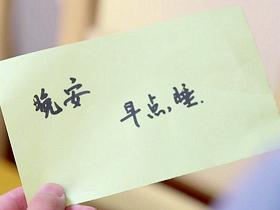 晚安
早点睡.